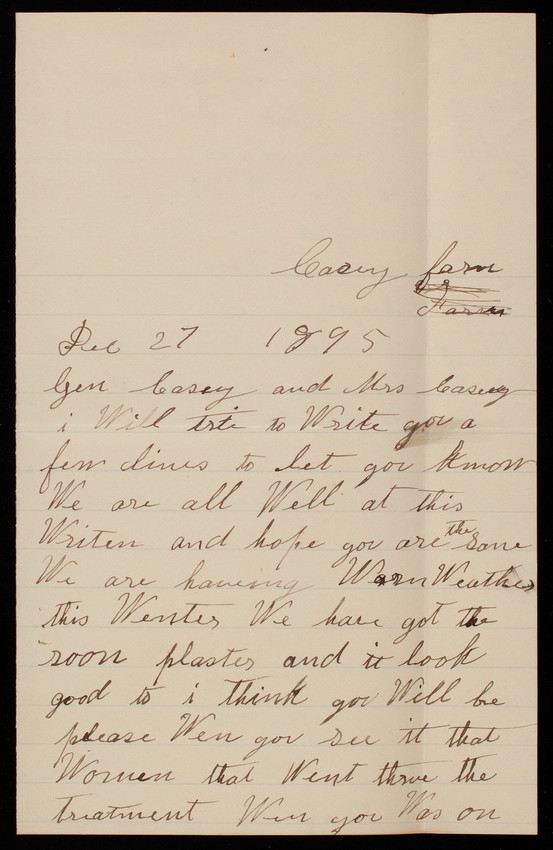 Casey farm
Farm
Dec 27 1895
Gen Casey and Mrs Casey
i Will trie to Write you a
few lines to let you know
We are all Well at this
Writen and hope you are the same
We are haveing Warm Weather
this Wenter We have got the
room plaster and it look
good to i think you Will be
please Wen you see it that
Women that Went throe the
treatment Wen you Was on